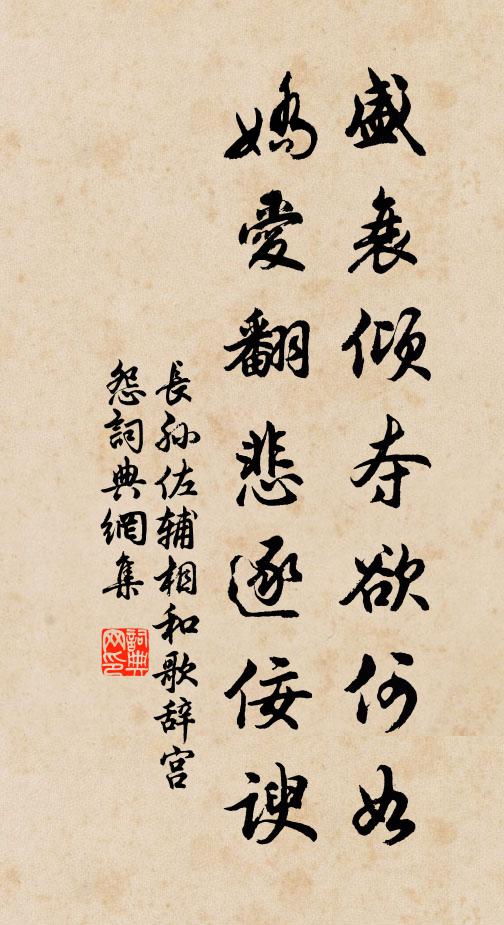 盛衰傾夺欲何如
嬌愛翻悲逐佞諛
長孙佐辅相和歌辞宫
怨詞典網集
詞典
网印